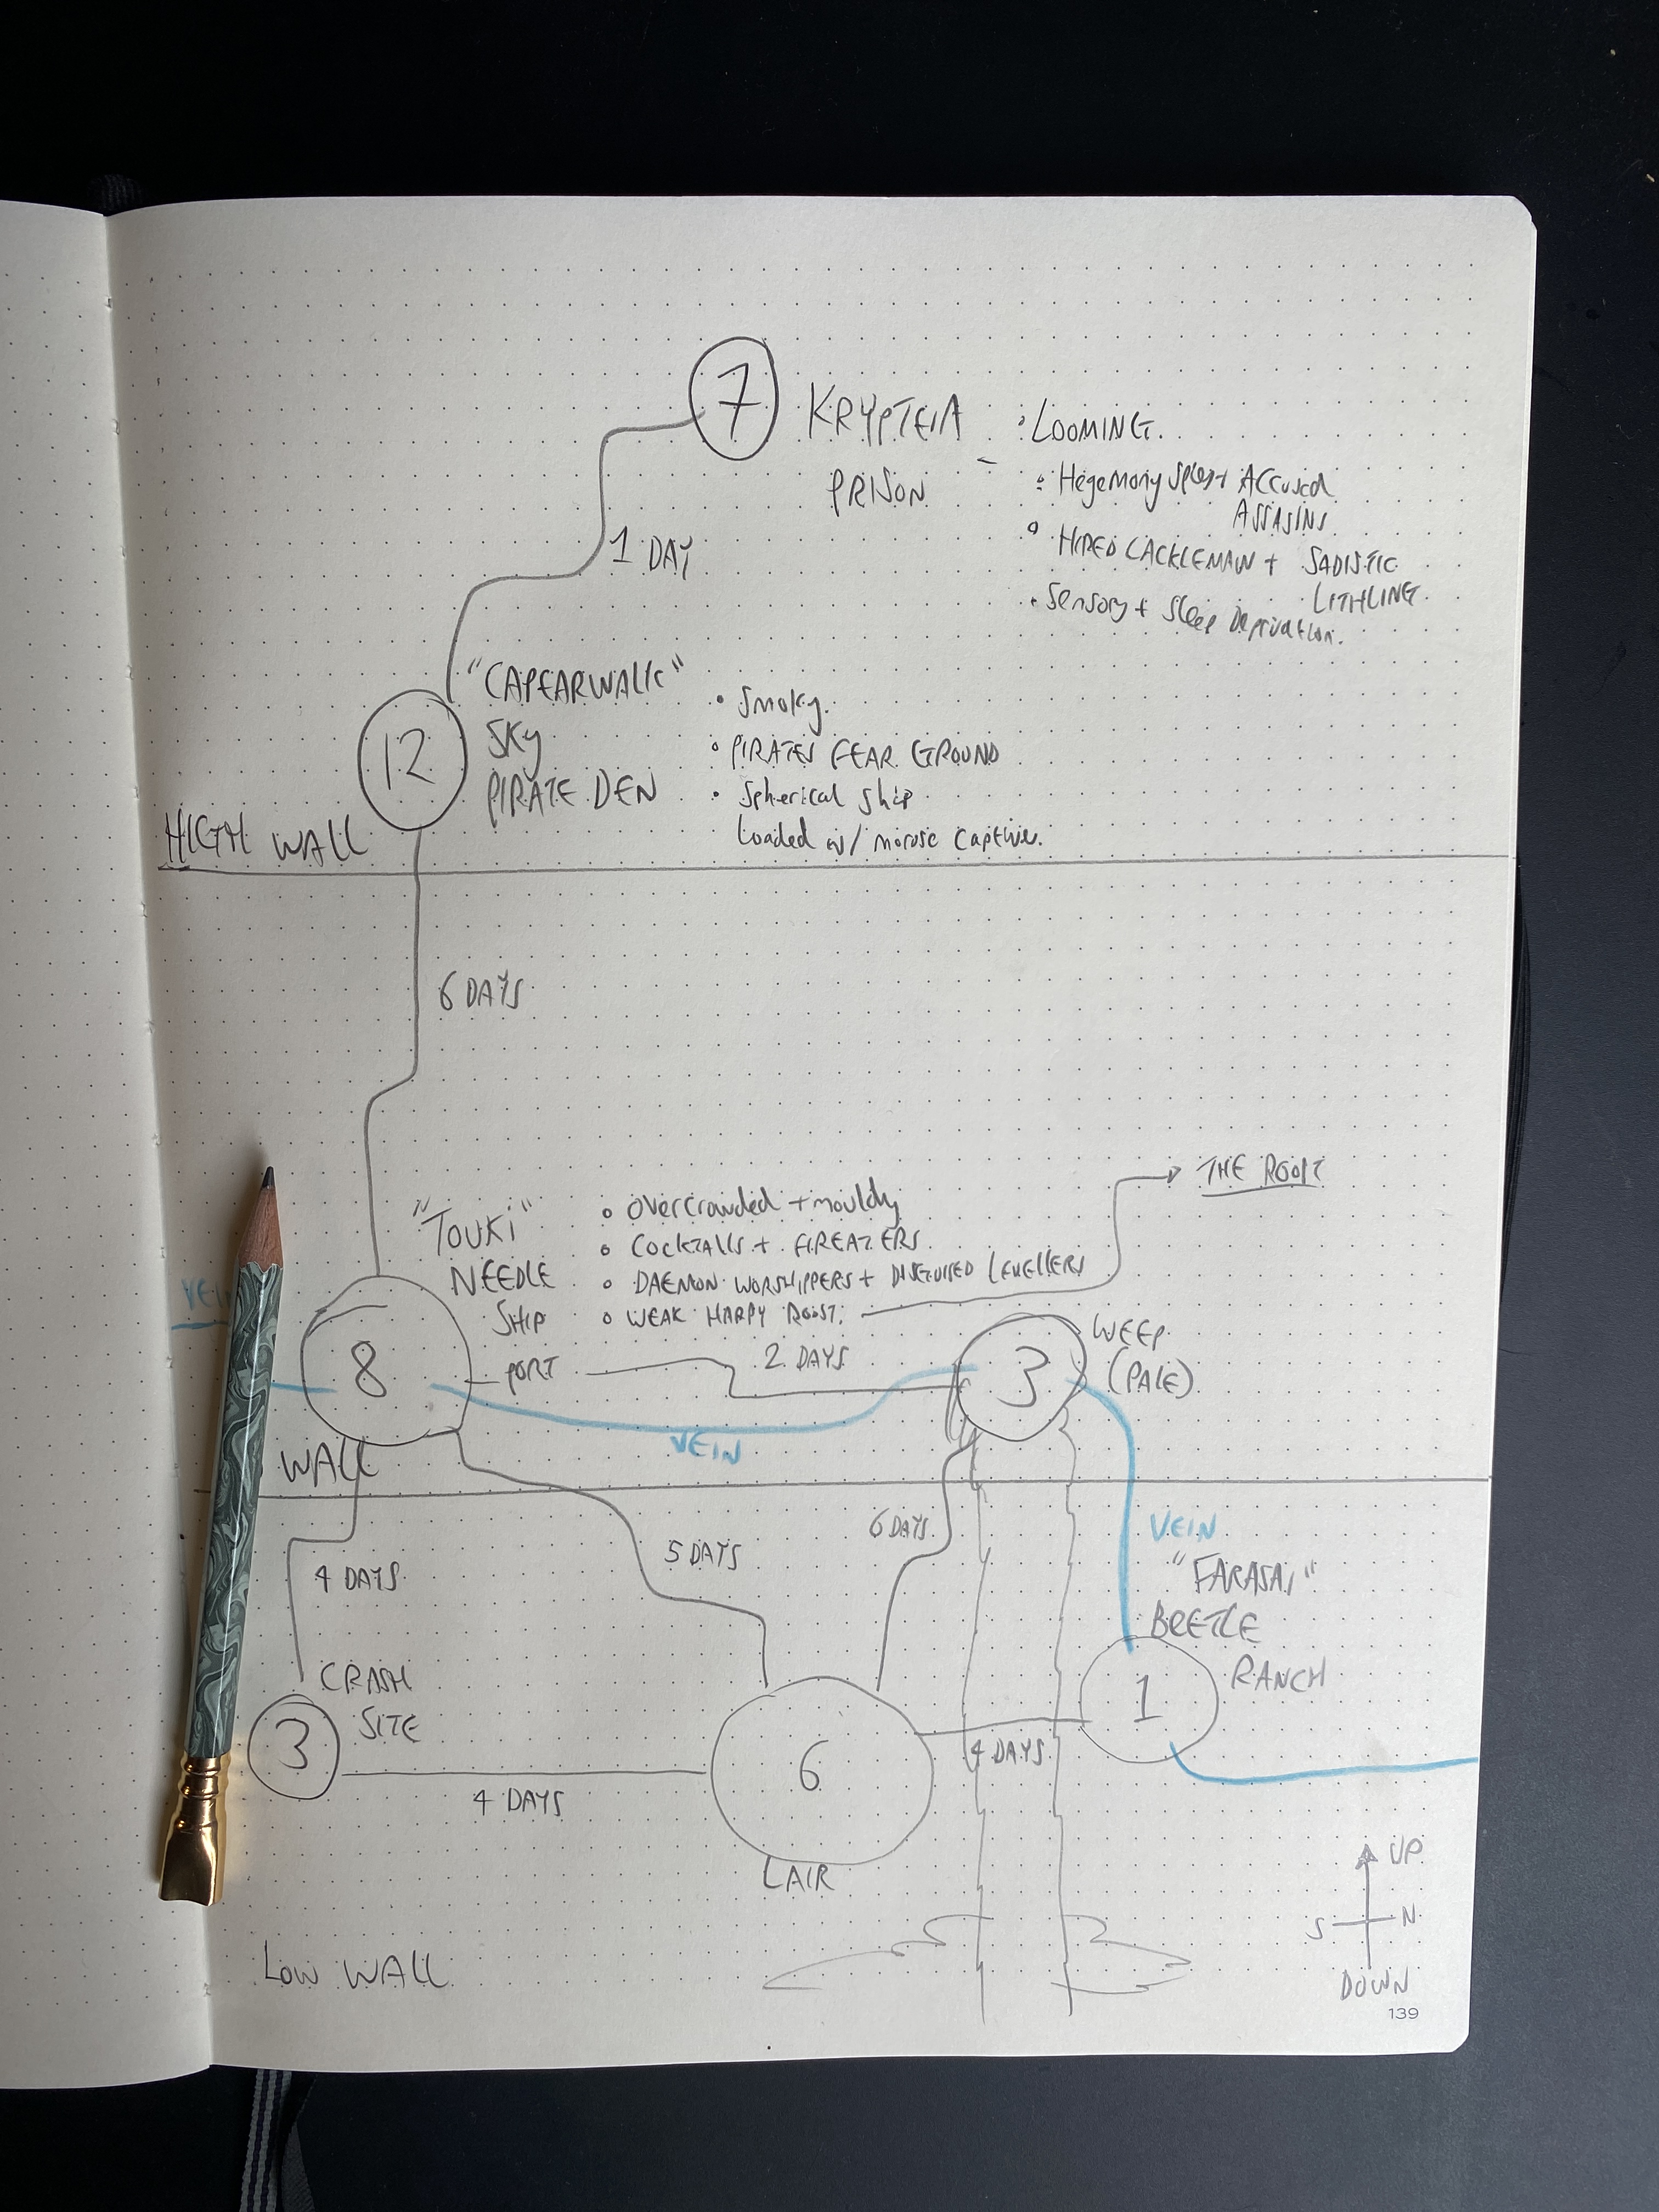 7
KRYPTEIA
PRISON
LOOMING.
Hegemony Spies + Accused
ASSASINS
HIRED CACKLEMAN + SADISTIC
LITHLING
Sensory + Sleep Deprivation.
1 DAY
"CAPEARWALK"
12
SKY
PIRATE DEN
Smoky.
PIRATES FEAR GROUND
Spherical Ship
Loaded w/ morose Captive.
HIGH WALL
6 DAYS
THE ROOST
"TOUKI"
NEEDLE
SHIP
PORT
Overcrowded + mouldy
COCKTAILS + FIREATERS
DAEMON WORSHIPPERS + DISGUISED LEVELLERS
WEAK HARPY ROOST.
8
2 DAYS
3
WEEP
(PALE)
VEIN
WALL
4 DAYS
5 DAYS
6 DAYS
VEIN
"FARASAI"
BEETLE
RANCH
1
CRASH
SITE
3
4 DAYS
6
LAIR
4 DAYS
LOW WALL
UP
S N
DOWN
139